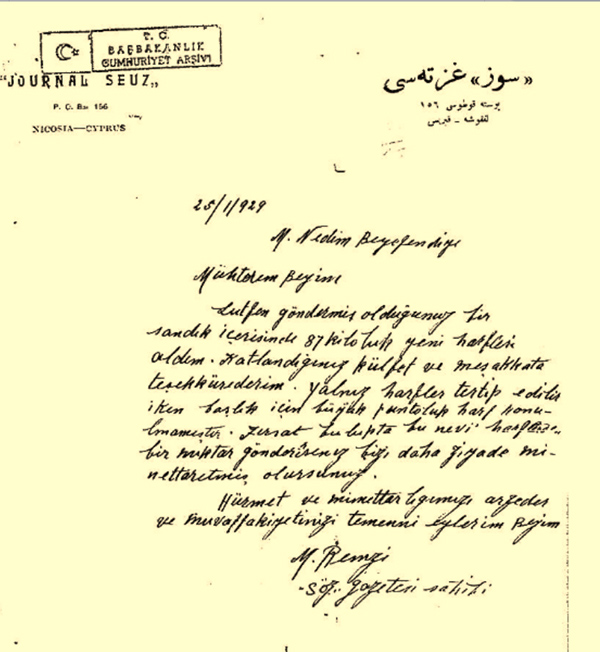 T. C.
BAŞBAKANLIK
CUMHURİYET ARŞİVİ
"JOURNAL SEUZ„
P. O. Box 156
NICOSIA—CYPRUS
«سوز» غزته‌سی
پوسته قوطوسی ١٥٦
لفقوشه - قبریس
25/1/929
M. Nedim Beyefendiye
Muhterem Beyim
Lutfen göndermiş olduğunuz bir
sandık içerisinde 87 kiloluk yeni harfleri
aldım. Katlandığınız külfet ve meşakkata
teşekkürederim. Yalnız harfler tertip edilir
iken başlık için büyük puntoluk harf konu-
lmamıştır. Fırsat bulupta bu nevi' harflerden
bir miktar gönderirseniz bizi daha ziyade mi-
nettaretmiş olursunuz.
Hürmet ve minettarlığımızı arzeder
ve muvaffakiyetinizi temenni eylerim Beyim
M. Remzi
"Söz" gazetesi sahibi